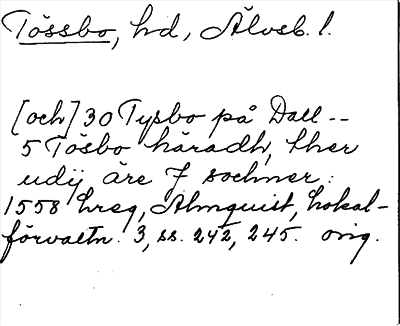 Tössbo, hd, Älvsb. l.
[och] 30 Tysbo på Dall --
5 Tösbo häradh, ther
udij äre 7 sochner:
1558 hreg, Almquist, Lokal-
förvaltn. 3, ss. 242, 245. orig.